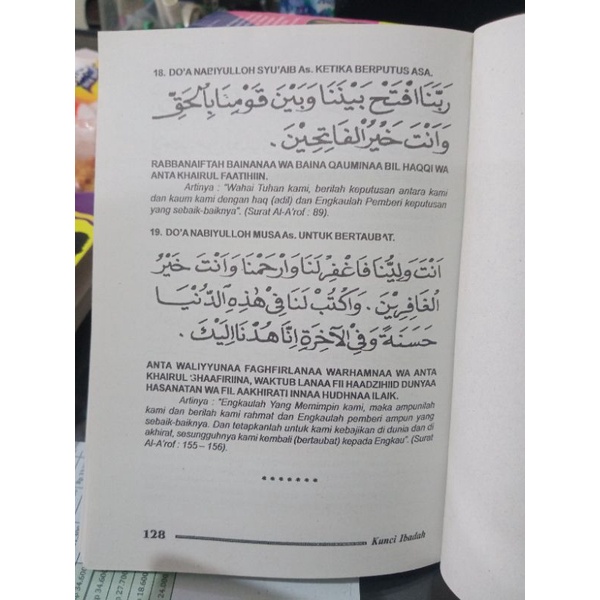 18. DO'A NABIYULLOH SYU'AIB As. KETIKA BERPUTUS ASA.
رَبَّنَا افْتَحْ بَيْنَنَا وَبَيْنَ قَوْمِنَا بِالْحَقِّ
وَاَنْتَ خَيْرُ الْفَاتِحِيْنَ .
RABBANAIFTAH BAINANAA WA BAINA QAUMINAA BIL HAQQI WA
ANTA KHAIRUL FAATIHIIN.
Artinya : "Wahai Tuhan kami, berilah keputusan antara kami
dan kaum kami dengan haq (adil) dan Engkaulah Pemberi keputusan
yang sebaik-baiknya". (Surat Al-A'rof : 89).
19. DO'A NABIYULLOH MUSA As. UNTUK BERTAUBAT.
اَنْتَ وَلِيُّنَا فَاغْفِرْ لَنَا وَارْحَمْنَا وَاَنْتَ خَيْرُ
الْغَافِرِيْنَ . وَاكْتُبْ لَنَا فِيْ هٰذِهِ الدُّنْيَا
حَسَنَةً وَفِي الْآخِرَةِ اِنَّا هُدْنَا اِلَيْكَ .
ANTA WALIYYUNAA FAGHFIRLANAA WARHAMNAA WA ANTA
KHAIRUL GHAAFIRIINA, WAKTUB LANAA FII HAADZIHID DUNYAA
HASANATAN WA FIL AAKHIRATI INNAA HUDHNAA ILAIK.
Artinya : "Engkaulah Yang Memimpin kami, maka ampunilah
kami dan berilah kami rahmat dan Engkaulah pemberi ampun yang
sebaik-baiknya. Dan tetapkanlah untuk kami kebajikan di dunia dan di
akhirat, sesungguhnya kami kembali (bertaubat) kepada Engkau". (Surat
Al-A'rof : 155 – 156).
*******
128
Kunci Ibadah